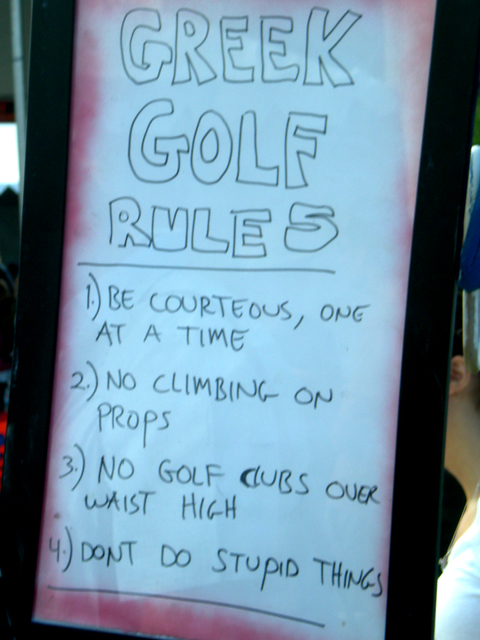 GREEK
GOLF
RULES
1.) BE COURTEOUS, ONE
AT A TIME
2.) NO CLIMBING ON
PROPS
3.) NO GOLF CLUBS OVER
WAIST HIGH
4.) DONT DO STUPID THINGS